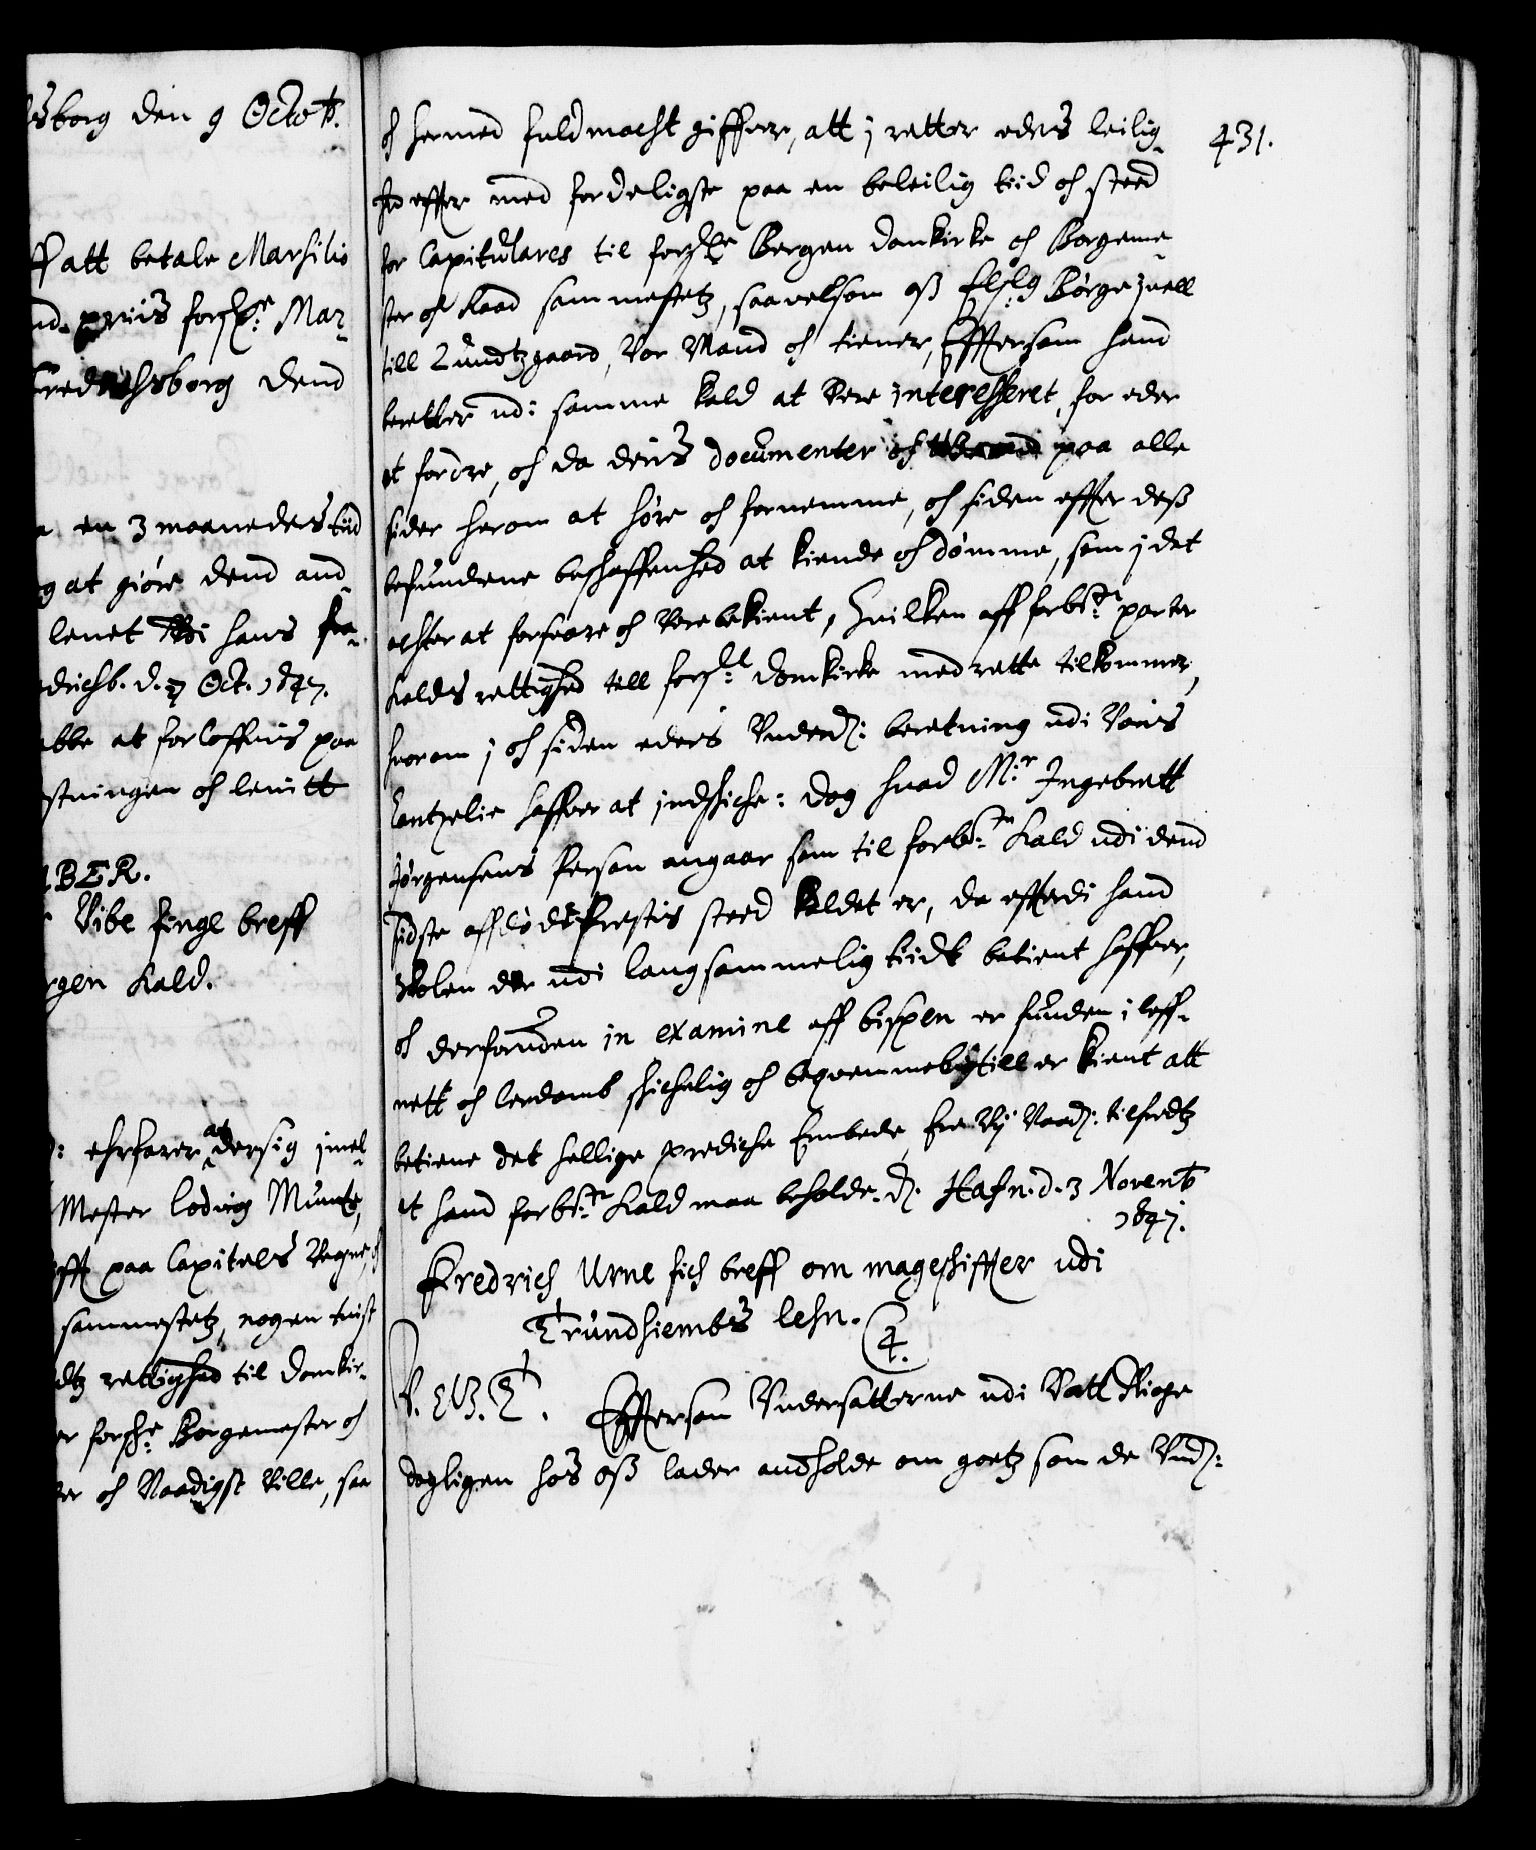 sborg den 9 Octob.
att betale Marsilio
priis forschne Mar-
Fredrichsborg dend
en 3 maaneders tiid
g at giøre dend and
lenet Udi hans fra-
drichsb. d. 7 Oct. 1647.
bbe at forloffuis paa
stningen och leuitt
BER.
Vibe finge breff
rgen Kald.
: ehrfarer at der sig imel-
Mester Lodvig Munte,
paa Capitels Vegne, och
sammestetz, nogen tuist
dtz rettighed til domkir-
er forschne Borgemester och
er och Naadigst Ville, saa
431.
och hermed fuldmacht giffuer, att j retter eders leilig-
hed effter med forderligste paa en beleilig tiid och sted
for Capitulares til forschne Bergen domkirke och Borgeme-
ster och Raad sammestetz, saavelsom oss Elschl: Børge Juell
till Lundtzgaard, Vor Mand och tiener, Efftersom hand
beretter udi samme Kald at Vere interesseret, for eder
at fordre, och da deris documenter och paa alle
sider herom at høre och fornemme, och siden effter dess
befundene beschaffenhed at kiende och dømme, som j det
achter at forsuare och Vere bekient, Huilken aff forbte: parter
Kalds rettighed till forschne domkirke med rette tilkommer,
huorom j och siden eders Underd: beretning udi Voris
Cantzelie haffuer at indschiche: dog huad Mr: Ingebrett
Jørgensens Person angaar som til forbte: Kald udi dend
sidste affdøde Prestis sted kaldet er, da efftterdi hand
Skolen der udi langsommelig tiidt betient haffuer,
och derforuden in examine aff bispen er funden i leff-
nett och lerdomb schichelig och beqvemmelig till er kient att
betiene det hellige prediche Embede, Ere Vij Naad: tilfredtz
at hand forbte: Kald maa beholde. d. Hafn. d. 3 Novemb
1647.
Fredrich Urne fich breff om mageschiffter udi
Trundhiembs lehn.
4.
C. 4. T. Effttersom Undersatterne udi Vortt Rige
dagligen hos oss lader andholde om goetz som de Und: